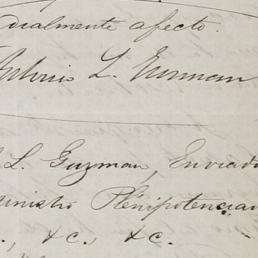 dialmente afecto.
L. Guzman
L. Guzman, Enviado
Ministro Plenipotenciar
&c., &c.